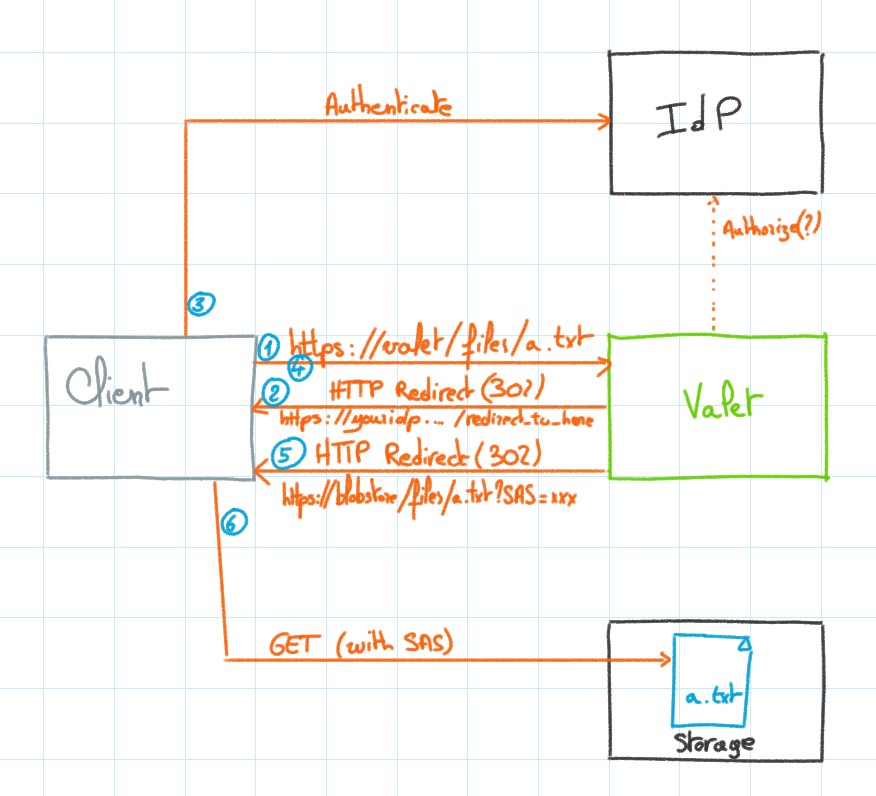 Authenticate
IdP
Authorize(?)
3
1
https://valet/files/a.txt
4
Client
2
HTTP Redirect (302)
https://youridp.... /redirect_to_here
Valet
5
HTTP Redirect (302)
https://blobstore/files/a.txt?SAS=xxx
6
GET (with SAS)
a.txt
Storage